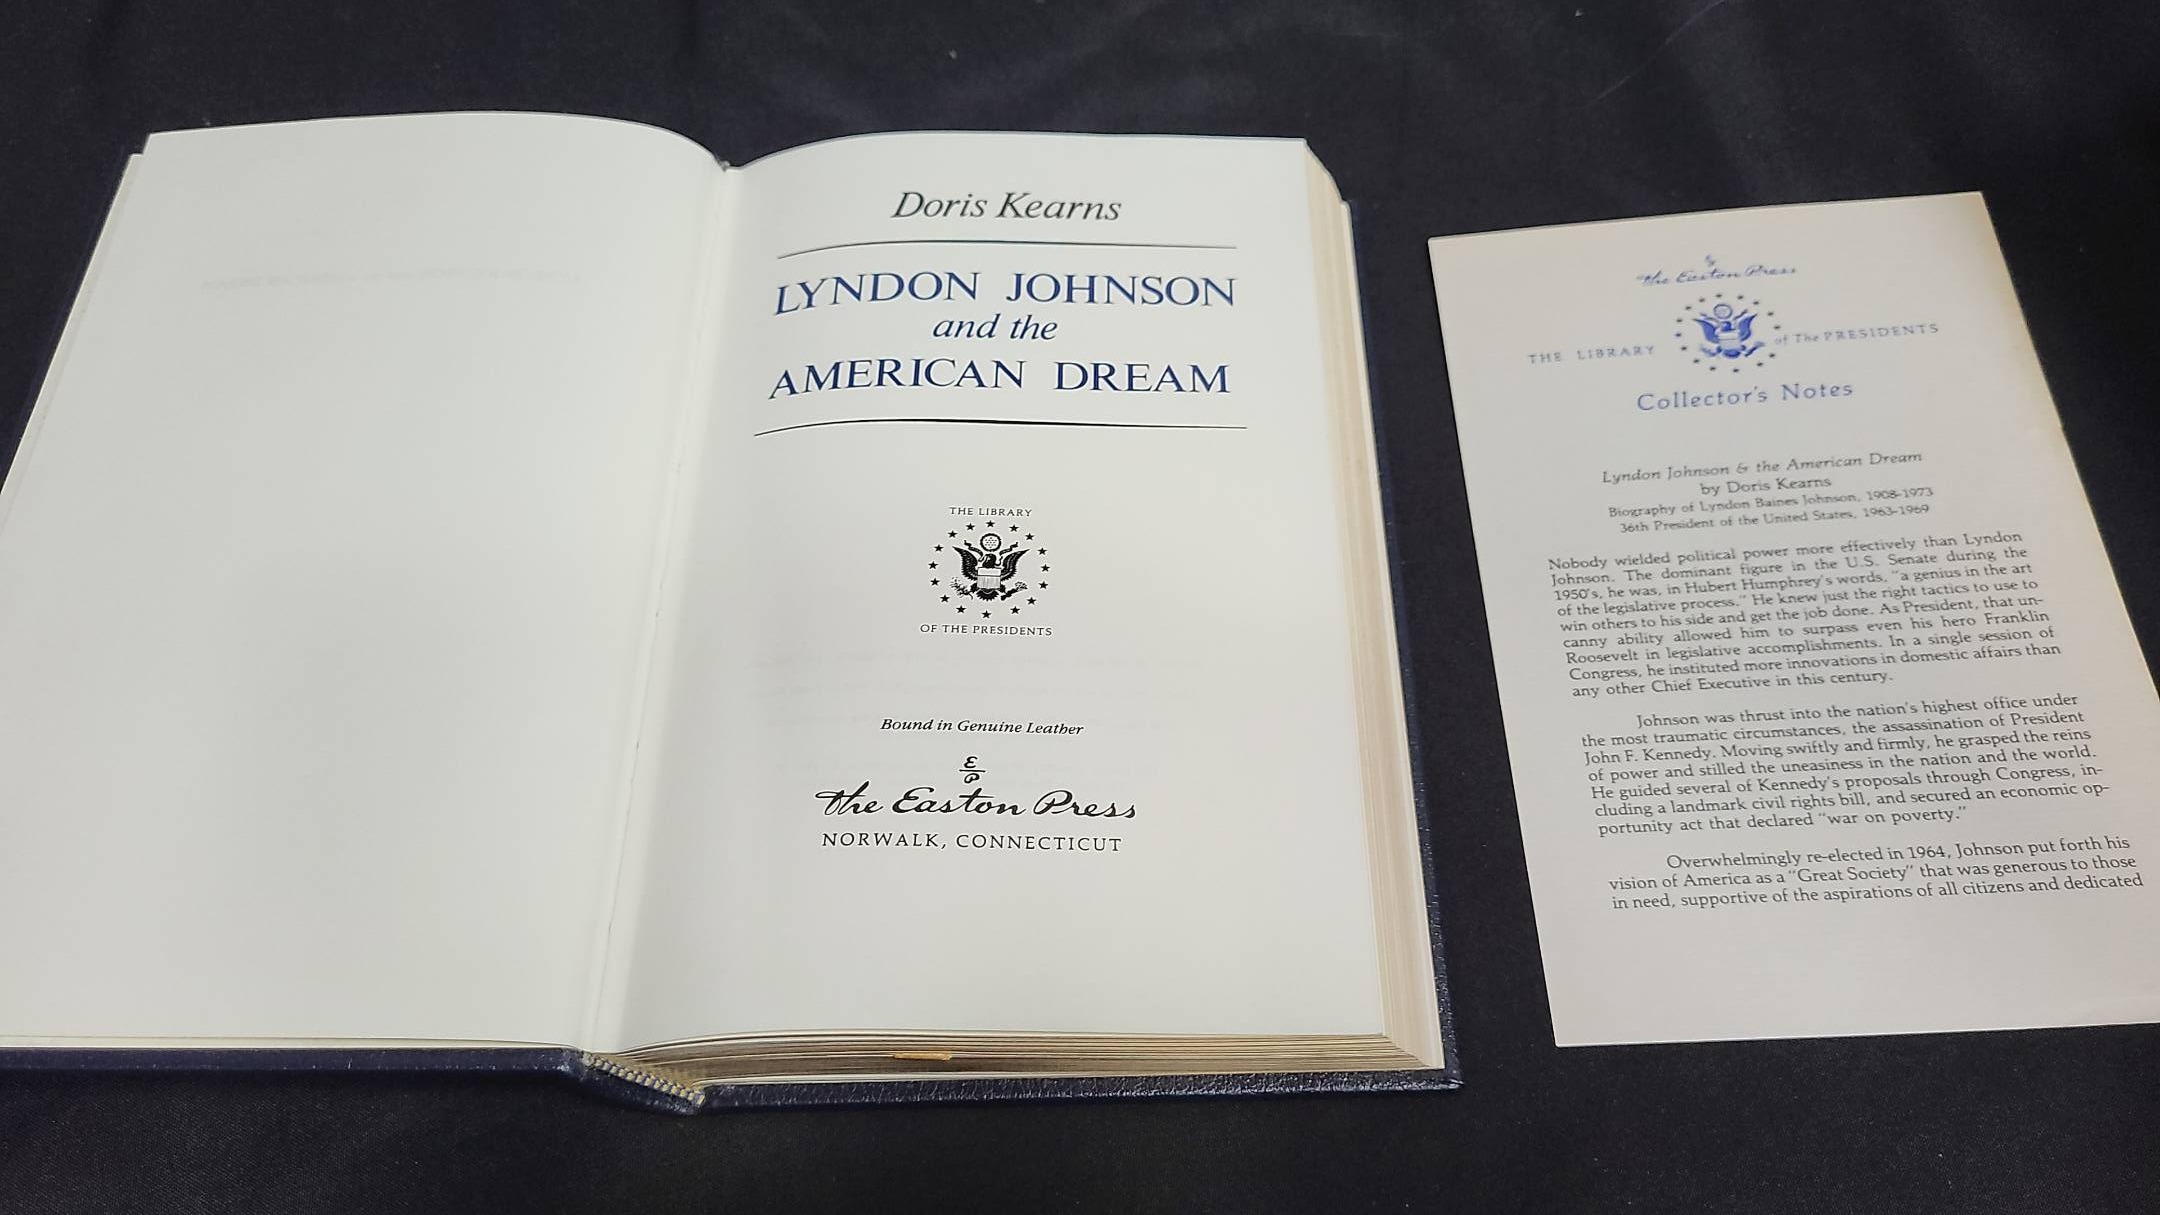 Doris Kearns
LYNDON JOHNSON
and the
AMERICAN DREAM
THE LIBRARY
OF THE PRESIDENTS
Bound in Genuine Leather
E
P
The Easton Press
NORWALK, CONNECTICUT
The Easton Press
THE LIBRARY of The PRESIDENTS
Collector's Notes
Lyndon Johnson & the American Dream
by Doris Kearns
Biography of Lyndon Baines Johnson, 1908-1973
36th President of the United States, 1963-1969
Nobody wielded political power more effectively than Lyndon
Johnson. The dominant figure in the U.S. Senate during the
1950's, he was, in Hubert Humphrey's words, "a genius in the art
of the legislative process." He knew just the right tactics to use to
win others to his side and get the job done. As President, that un-
canny ability allowed him to surpass even his hero Franklin
Roosevelt in legislative accomplishments. In a single session of
Congress, he instituted more innovations in domestic affairs than
any other Chief Executive in this century.
Johnson was thrust into the nation's highest office under
the most traumatic circumstances, the assassination of President
John F. Kennedy. Moving swiftly and firmly, he grasped the reins
of power and stilled the uneasiness in the nation and the world.
He guided several of Kennedy's proposals through Congress, in-
cluding a landmark civil rights bill, and secured an economic op-
portunity act that declared "war on poverty."
Overwhelmingly re-elected in 1964, Johnson put forth his
vision of America as a "Great Society" that was generous to those
in need, supportive of the aspirations of all citizens and dedicated